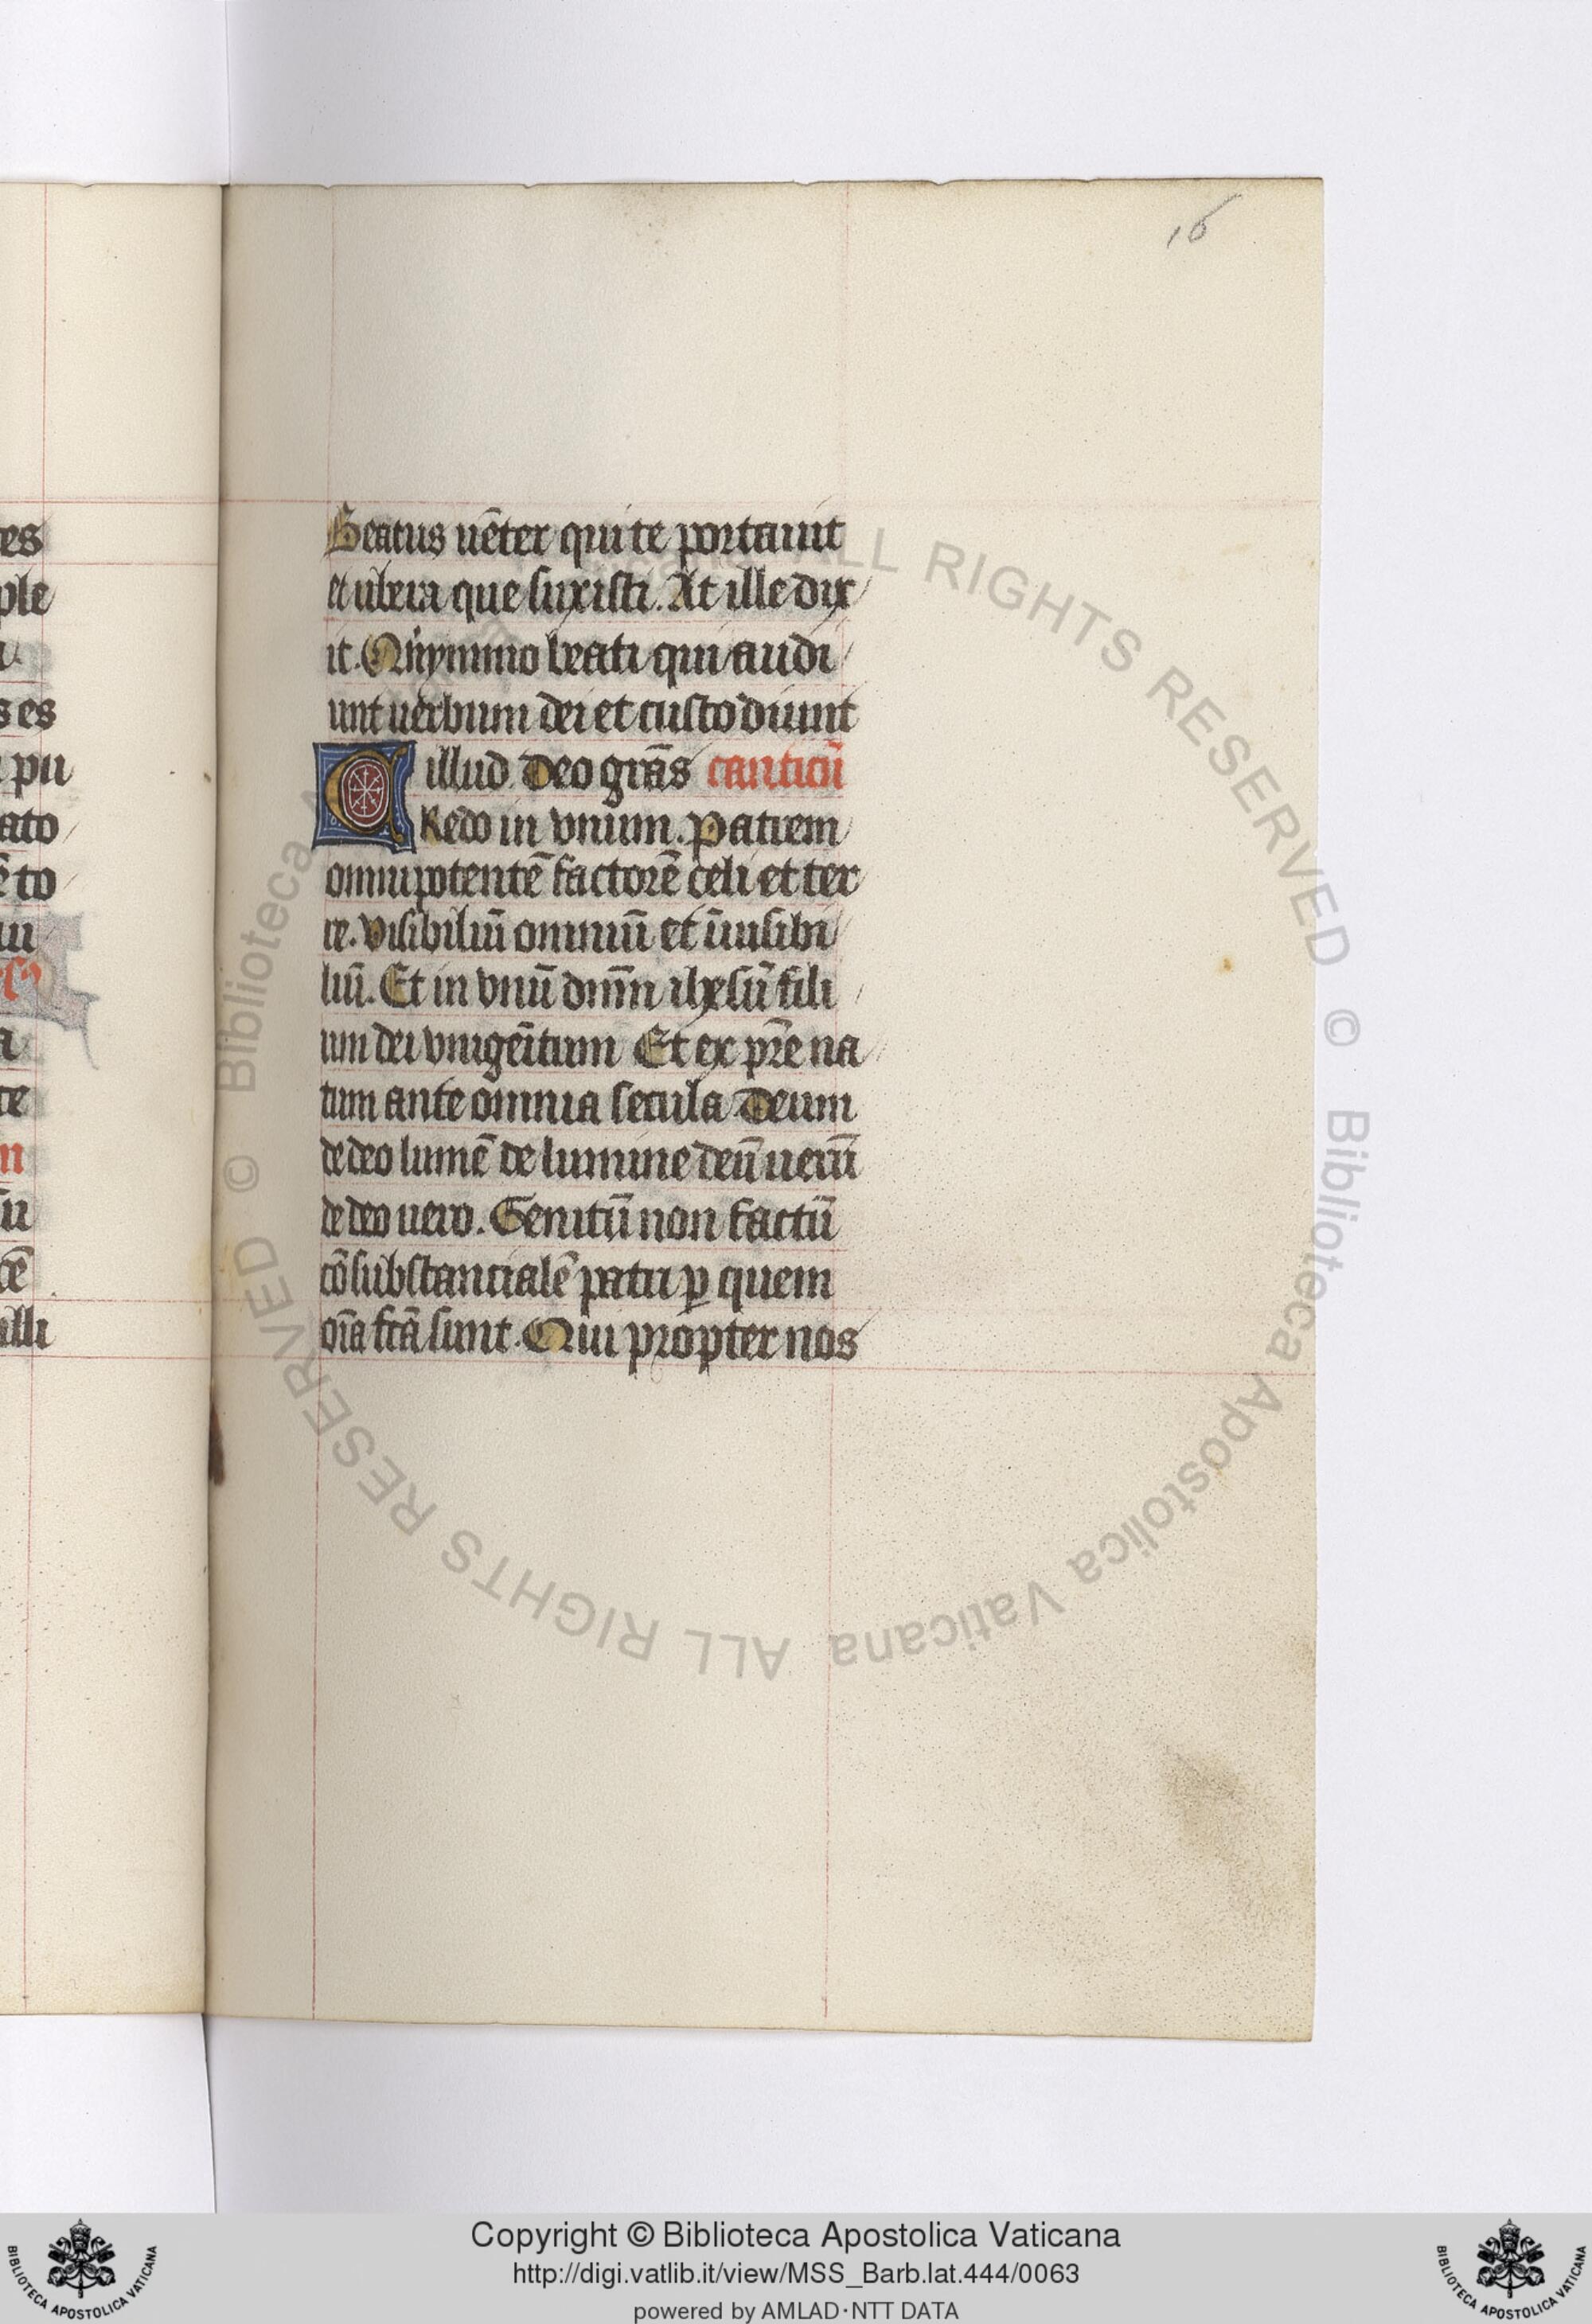 16
Beatus uēter qui te portauit
et ubera que suxisti. At ille dix
it. Quȳmmo beati qui audi
unt uerbum dei et custodiunt
illud. Deo grās canticū
CRedo in vnum. Patrem
omnipotentē factorē celi et ter
re. visibiliū omniū et īuisibi
liū. Et in vnū dnm̄ ihesū fili
um dei vnigeītum Et ex pr̄e na
tum ante omnia secula Deum
de deo lumē de lumine deū uerū
de deo uero. Genitū non factū
cōsubstancialē patri ꝑ quem
oīa fc̄a sunt. Qui propter nos
es
ple
s es
pu
ato
ē to
te
illi
Copyright © Biblioteca Apostolica Vaticana
http://digi.vatlib.it/view/MSS_Barb.lat.444/0063
powered by AMLAD·NTT DATA
BIBLIOTECA APOSTOLICA VATICANA
BIBLIOTECA APOSTOLICA VATICANA
© Biblioteca Apostolica Vaticana ALL RIGHTS RESERVED
© Biblioteca Apostolica Vaticana ALL RIGHTS RESERVED